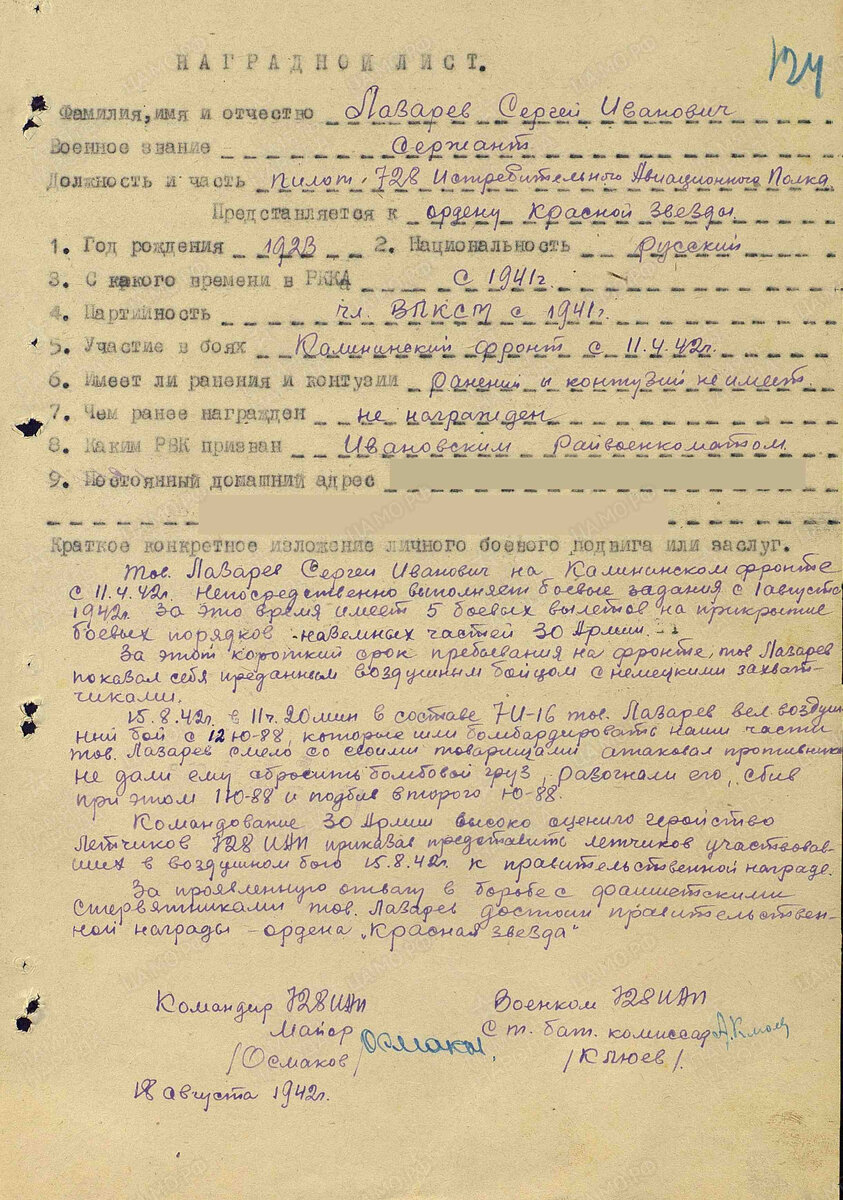 124
НАГРАДНОЙ ЛИСТ.
Фамилия, имя и отчество Лазарев Сергей Иванович
Военное звание Сержант
Должность и часть пилот 728 Истребительного Авиационного Полка
Представляется к ордену Красной Звезды
1. Год рождения 1923 2. Национальность русский
3. С какого времени в РККА с 1941г.
4. Партийность чл. ВЛКСМ с 1941г.
5. Участие в боях Калининский фронт с 11.4.42г.
6. Имеет ли ранения и контузии ранений и контузий не имеет
7. Чем ранее награжден не награжден
8. Каким РВК призван Ивановским Райвоенкоматом
9. Постоянный домашний адрес
Краткое конкретное изложение личного боевого подвига или заслуг.
Тов. Лазарев Сергей Иванович на Калининском фронте
с 11.4.42г. Непосредственно выполняет боевые задания с 1 августа
1942г. За это время имеет 5 боевых вылетов на прикрытие
боевых порядков наземных частей 30 Армии.
За этот короткий срок пребывания на фронте, тов. Лазарев
показал себя преданным воздушным бойцом с немецкими захват-
чиками.
15.8.42г. в 11ч. 20мин в составе 7 И-16 тов. Лазарев вел воздуш-
ный бой с 12 Ю-88, которые шли бомбардировать наши части
тов. Лазарев смело со своими товарищами атаковал противника
не дали ему сбросить бомбовой груз, разогнали его, сбив
при этом 1 Ю-88 и подбив второго Ю-88.
Командование 30 Армии высоко оценило геройство
летчиков 728 ИАП приказав представить летчиков участвовав-
ших в воздушном бою 15.8.42г. к правительственной награде.
За проявленную отвагу в борьбе с фашистскими
стервятниками тов. Лазарев достоин правительствен-
ной награды - ордена "Красная звезда"
Командир 728 ИАП Военком 728 ИАП
Майор Ст. бат. комиссар
/Осмаков/ Осмаков /Клюев/.
18 августа 1942г.